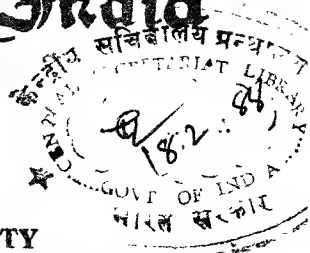 India
केन्द्रीय सचिवालय ग्रन्थागार
CENTRAL SECRETARIAT LIBRARY
18.2.88
GOVT OF INDIA
भारत सरकार
TY